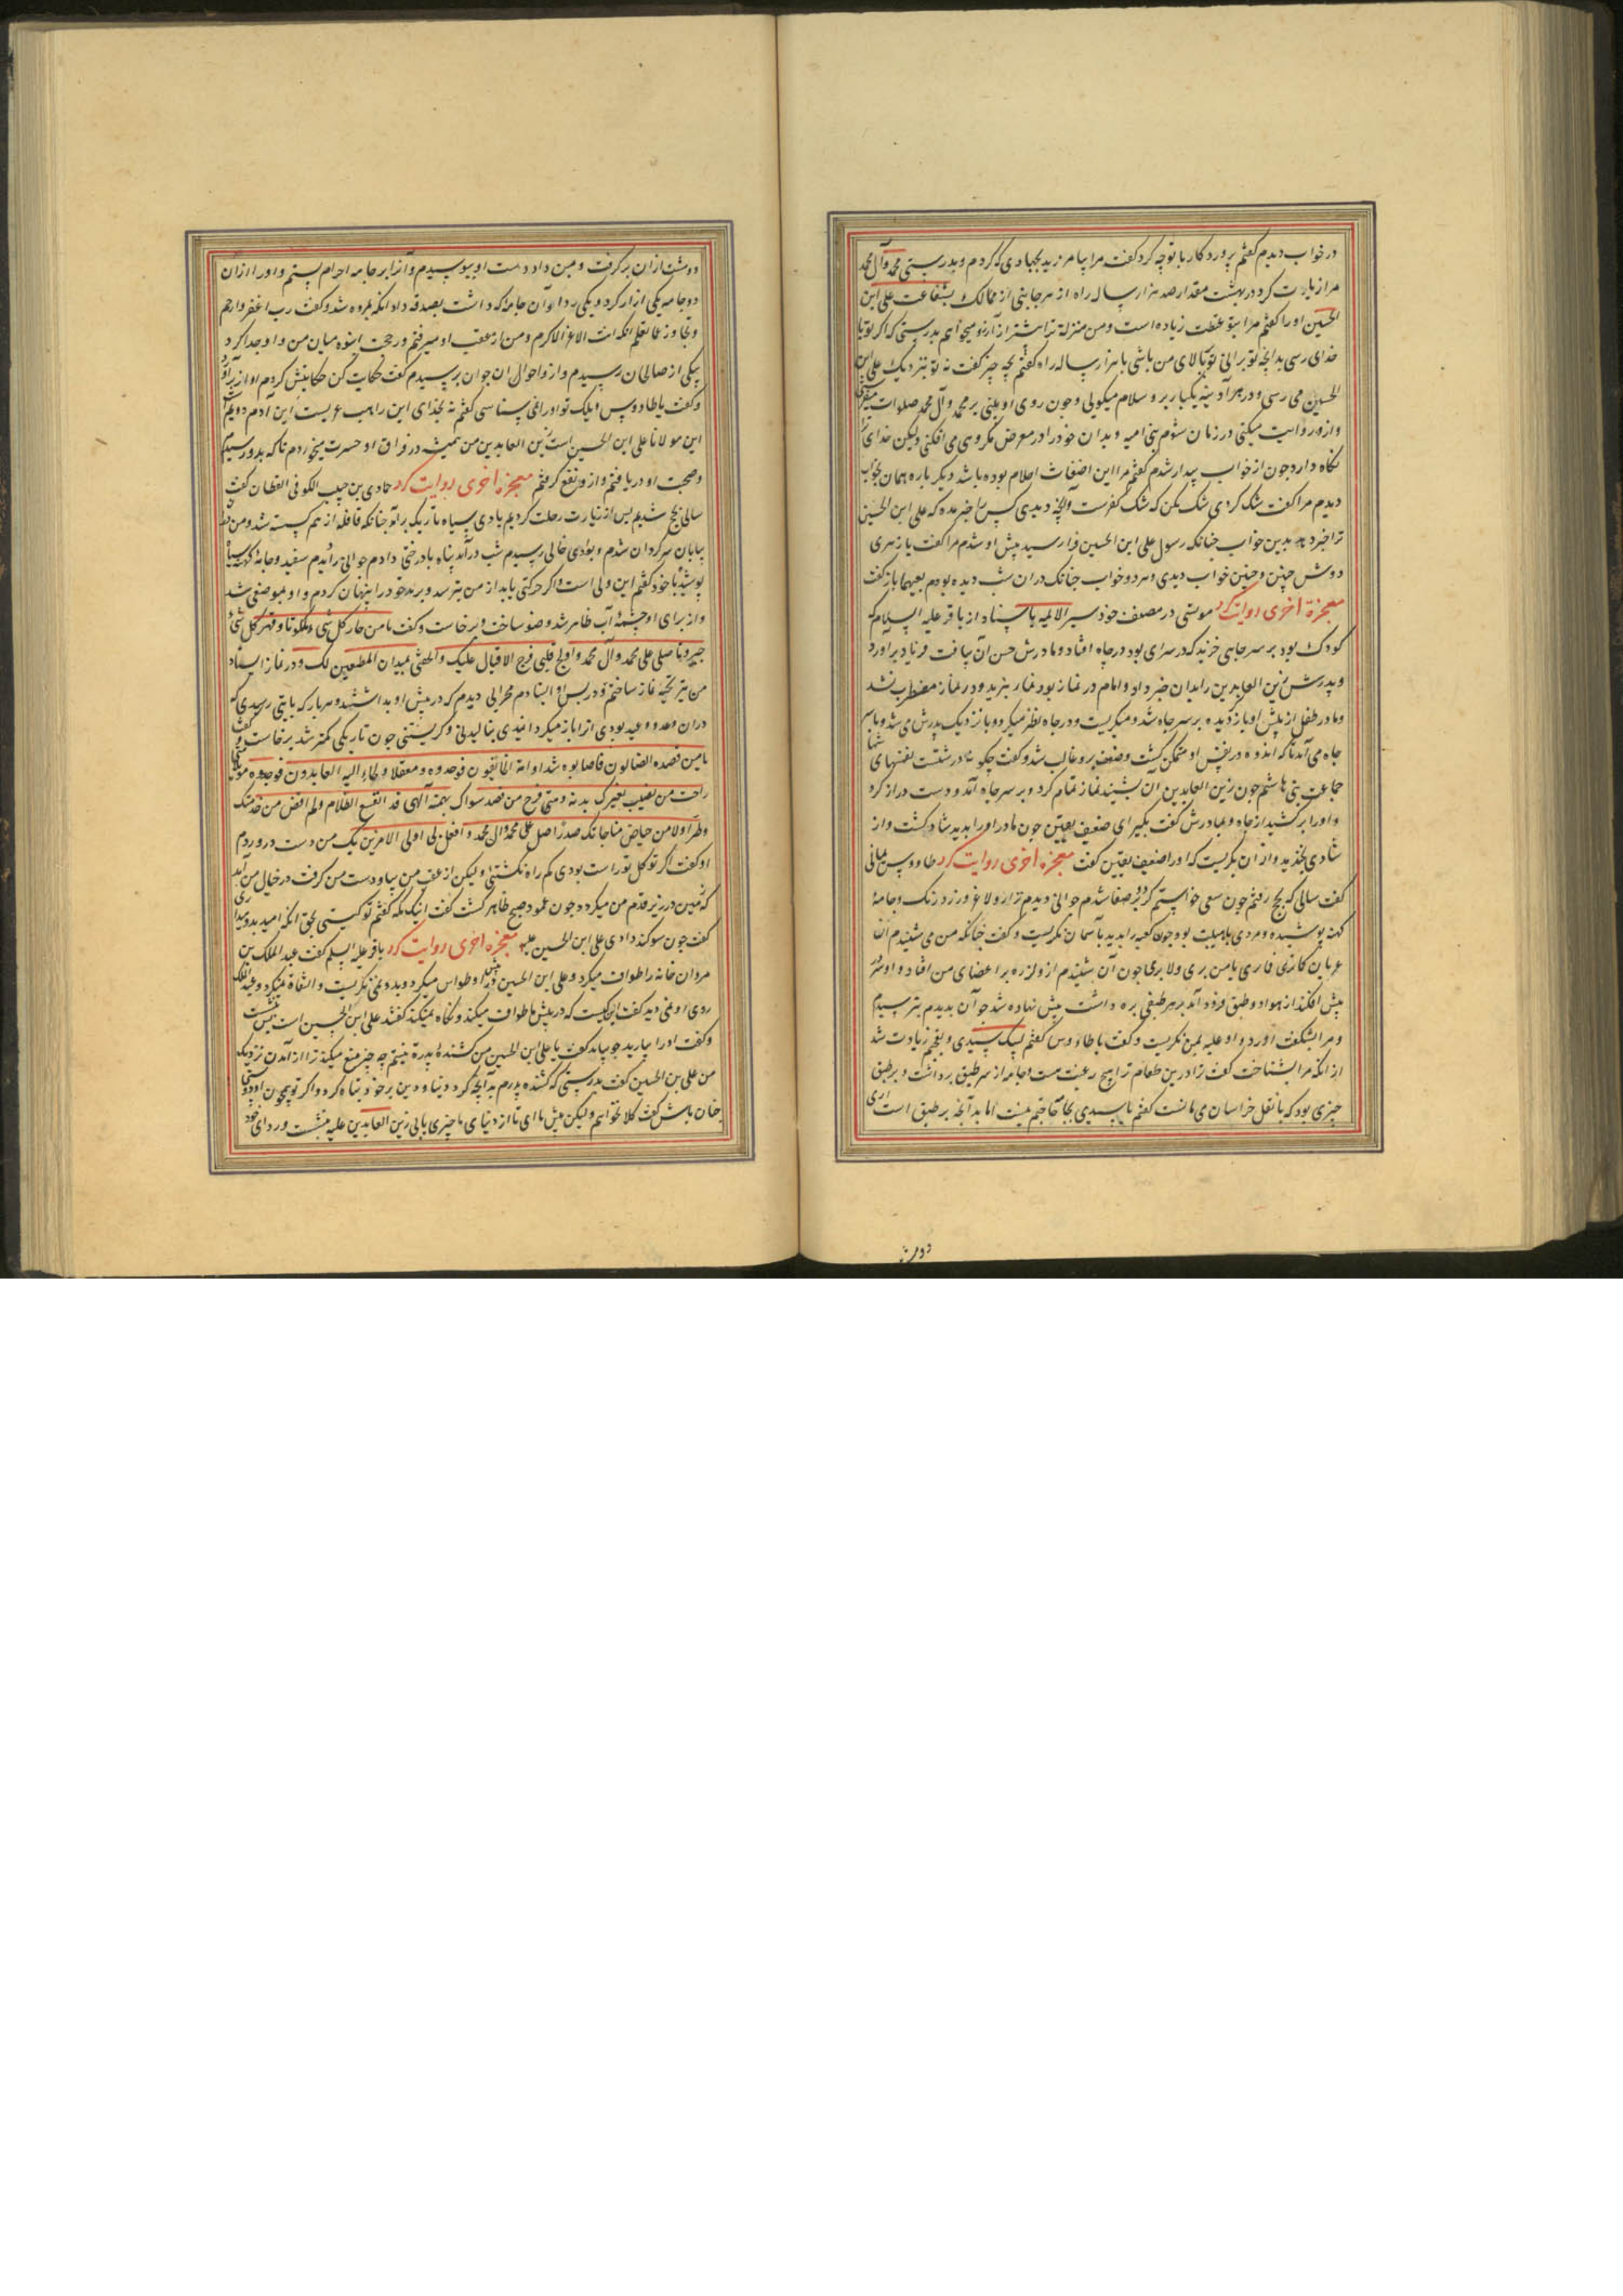 در خواب دیدم گفتم پروردگار با تو چه کرد گفت مرا بیامرزید بجهادی که کردم و بدرستی محمد وآل محمد
مرا زیارت کرد در بهشت مقدار صد هزار ساله راه از هر جانبی از ممالک بشفاعت علی ابن
الحسین او را گفتم مرا بتو غبطت زیاده است ومن منزلة ترا بیشتر از آن آرزو میخواهم بدرستی که اگر تو با
خدای رسی بدانچه تو برانی تو بالای من باشی با هزار ساله راه گفتم بچه چیز گفت نه تو نزدیک علی ابن
الحسین می رسی و در هر آدینه یکبار بر و سلام میکوئی وچون روی او بینی بر محمد وآل محمد صلوات میفرستی
وازو روایت میکنی در زمان شوم بنی امیه وبدان خود را در معرض مکروهی می افکنی ولیکن خدای ترا
نگاه دارد چون از خواب بیدار شدم گفتم مرا این اضغاث احلام بوده باشد دیگر باره همان بخواب
دیدم مرا گفت شک کردی شک مکن که شک کفرست وآنچه دیدی کس را خبر مده که علی ابن الحسین
ترا خبر دهد بدین خواب چنانکه رسول علی ابن الحسین فرا رسید پیش او شدم مرا گفت یا زهری
دوش چنین وچنین خواب دیدی وهر دو خواب چنانک در ان شب دیده بودم بعینها باز گفت
معجزة اخری روایت کرد موسی در مصحف خود سیر الائمه باسناد از باقر علیه السلام که
کودک بود بر سر چاهی خزید که در سرای بود در چاه افتاد ومادرش حس آن بیافت فریاد برآورد
وپدرش زین العابدین را بدان خبر داد وامام در نماز بود نماز نبرید ودر نماز مضطرب نشد
ومادر طفل از پیش او باز دیده بر سر چاه شد ومیگریست ودر چاه نظر میکرد وباز نزدیک پدرش می شد وبا سر
چاه می آمد تا که اندوه در نفس او متمکن گشت وضعف برو غالب شد وگفت چگونه درشتست نفسهای شما
جماعت بنی هاشم چون زین العابدین آن بشنید نماز تمام کرد وبر سر چاه آمد ودست دراز کرد
واو را برکشید از چاه وبمادرش گفت بگیر ای ضعیف یقین چون مادر او را بدید شاد گشت واز
شادی بخندید واز آن بگریست که او را ضعیف یقین گفت معجزه اخری روایت کرد طاووس یمانی
گفت سالی که بحج رفتم چون سعی خواستم کرد بر صفا شدم جوانی دیدم نزار ولاغر وزرد رنگ وجامهٔ
کهنه پوشیده ومردی باهیبت بود وچون کعبه را بدید بآسمان نگریست وگفت چنانکه من می شنیدم انا
عریان کما تری فما تری یا من یری ولا یری چون آن بشنیدم ازو لرزه بر اعضای من افتاد واو سر در
پیش افکند از هوا دو طبق فرود آمد بر هر طبقی برد داشت پیش نهاده شد چو آن بدیدم بترسیدم
ومرا بشگفت آورد واو علیه بمن نگریست وگفت یا طاووس گفتم لبیک سیدی وتعجبم زیادت شد
از انکه مرا بشناخت گفت ترا درین طعام ترا هیچ رغبت هست وجامه از سر طبق برداشت وبر طبق
چیزی بود که با نقل خراسان می مانست گفتم یا سیدی بجامه حاجتم نیست اما بدآنچه بر طبق است اری
دوشت
دو مشت از ان برگرفت وبمن داد ودست او ببوسیدم وآنرا بر جامه احرام بستم واو را از ان
دو جامه یکی ازار کرد ویکی ردا وآن جامه که داشت بصدقه داد انگه بمروه شد وگفت رب اغفر وارحم
وتجاوز عما تعلم انک انت الاعز الاکرم ومن از عقب او میرفتم زحمت انبوه میان من واو جدا کرد
بیکی از صالحان رسیدم واز واحوال ان جوان بپرسیدم گفت حکایت کن حکایتش کردم
وگفت یا طاووس ویلک تو او را نمی شناسی گفتم نه بخدای این راهب عربست این آدم دویم
این مولانا علی ابن الحسین است زین العابدین من همیشه در فراق او حسرت میخوردم تا که بدو رسیدم
وصحبت او دریافتم وازو نفع گرفتم معجزه اخری روایت کرد حمادی بن حبیب الکوفی القطان گفت
سالی بحج شدیم پس از زیارت رحلت کردیم بادی سیاه تاریک برآمد چنانکه قافله از هم گسسته شد ومن در
بیابان سرگردان شدم وبوادی خالی رسیدم شب درآمد پناه بادرختی دادم جوانی را دیدم سفید وجامهٔ کهنه سیاه
پوشیده با خود گفتم این ولی است اگر حرکتی یابد از من بترسد وبرمد خود را پنهان کردم واو بموضعی شد
واز برای او چشمهٔ آب ظاهر شد وضو ساخت وبرخاست وگفت یا من حاز کل شی ملکوتا وقهر کل شیٔ
جبروتا صلی علی محمد وآل محمد واولج قلبی فرح الاقبال علیک والحقنی بمیدان المطیعین لک ودر نماز ایستاد
من نیز تهیهٔ نماز ساختم ودر پس او ایستادم محرابی دیدم که در پیش او بداشتند وهر بار که بآیتی رسیدی که
در ان وعد و وعید بودی انرا باز میگردانیدی بنالیدنی وگریستنی چون تاریکی کمتر شد برخاست وگفت
یا من قصده الضالون فاصابوه مرشدا وامه الخائفون فوجدوه ومعقلا ولجاء الیه العابدون فوجدوه موئلا متی
راحت من نصب لغیرک بدنه ومتی فرح من قصد سواک بهمته آلهی قد انقشع الظلام ولم اقض من خدمتک
وطرا ولا من حیاض مناجاتک صدرا صل علی محمد وآل محمد وافعل بی اولی الامرین بک من دست درو زدم
او گفت اگر توکل تو راست بودی گم راه نگشتی ولیکن از عقب من بیا ودست من گرفت در خیال من آمد
که زمین در زیر قدم من میگردد چون عمود صبح ظاهر گشت گفت اینک مکه گفتم تو کیستی بحق انکه امید بدو میداری
گفت چون سوگند دادی علی ابن الحسین علیه معجزه اخری روایت کرد باقر علیه السلم گفت عبد الملک بن
مروان خانه را طواف میکرد وعلی ابن الحسین در پیش او طواف میکرد وبدو نمی نگریست والتفاة نمیکرد وعبد الملک
روی او نمی دید گفت این کیست که در پیش ما طواف میکند ونگاه نمیکند گفتند علی ابن الحسین است بنشست
وگفت او را بیارید چو بیامد گفت یا علی ابن الحسین من کشنده پدرت نیستم چه چیز منع میکند ترا از آمدن نزدیک
من علی بن الحسین گفت بدرستی که کشنده پدرم بدآنچه کرد دنیا ودین بر خود تباه کرد واگر تو همچون او
چنان باش گفت کلا نخواهم ولیکن پیش ما ای تا از دنیای ما چیزی یابی زین العابدین علیه بنشست وردای خود